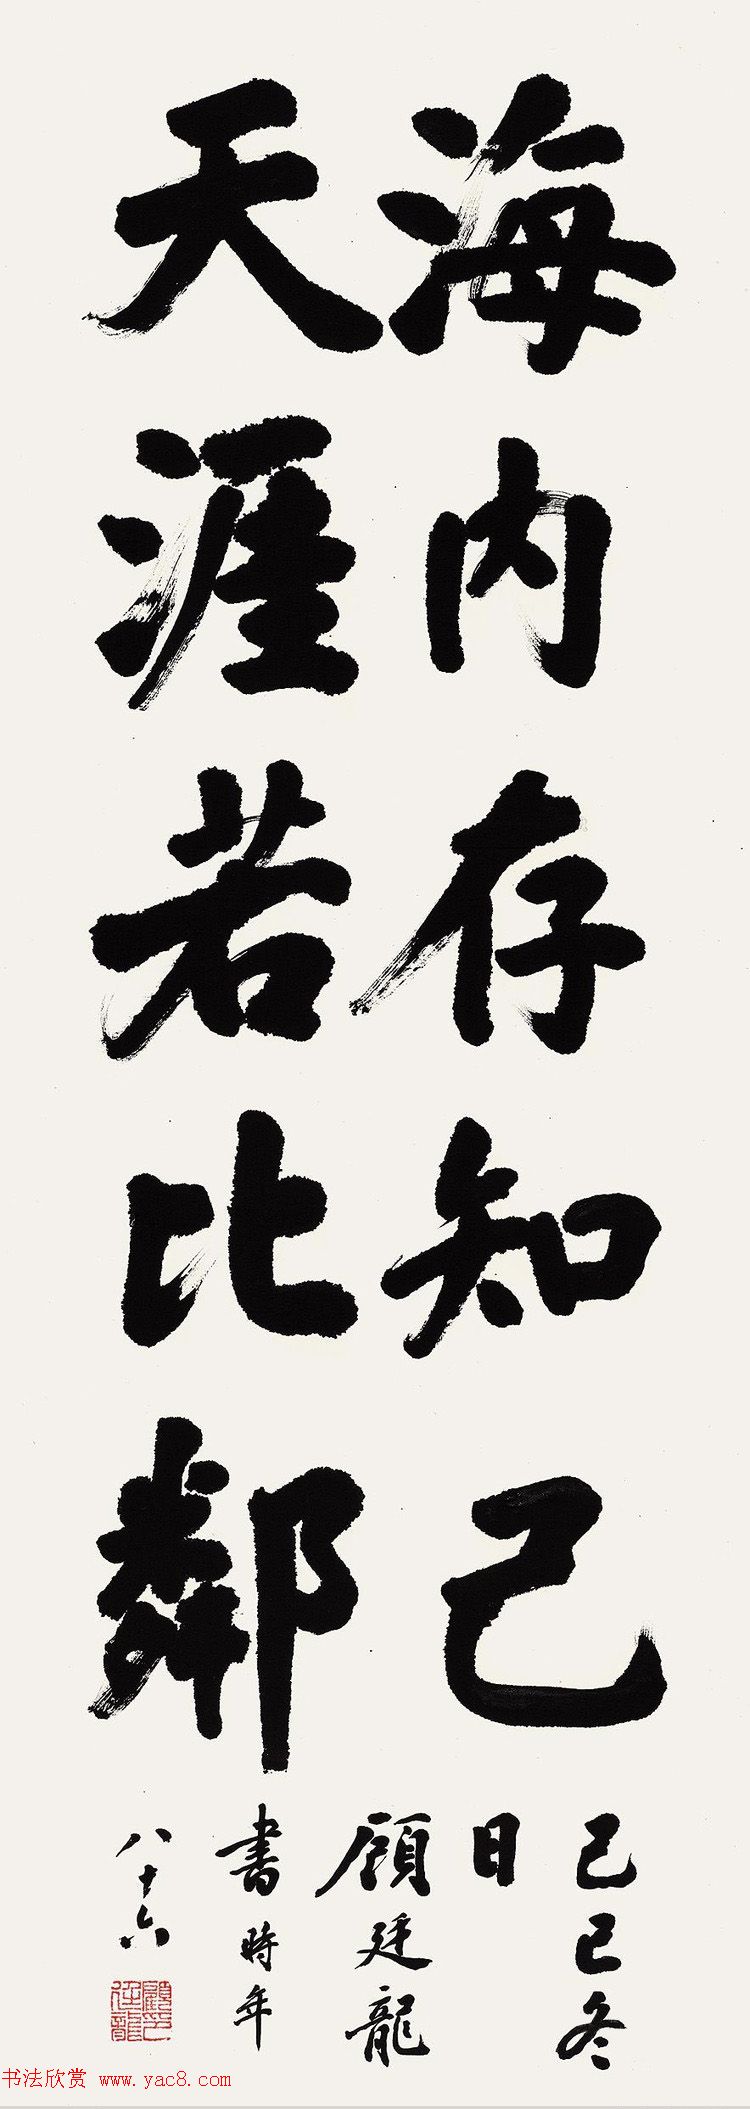 海内存知己
天涯若比鄰
己巳冬
日
顧廷龍
書時年
八十六
顧廷龍印
书法欣赏 www.yac8.com